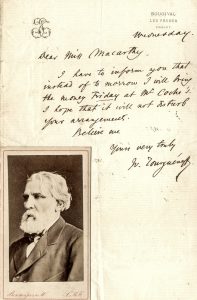 BOUGIVAL
LES FRÊNES
Wednesday.
Dear Miss Macarthy
I have to inform you that
instead of to morrow I will bring
the money Friday at Mr Cooke's.
I hope that it will not disturb
your arrangements.
Believe me
Yours very truly
Iv. Tourguéneff